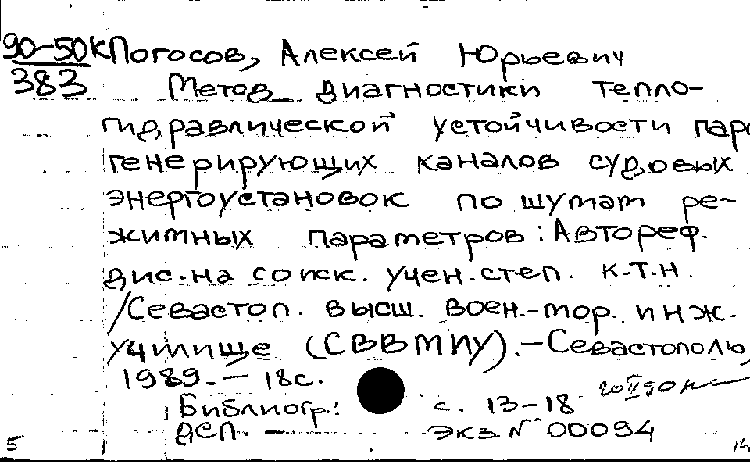 90-50К Погосов, Алексей Юрьевич
383 Метод диагностики тепло-
гидравлической устойчивости паро
генерирующих каналов судовых
энергоустановок по шумам ре-
жимных параметров: Автореф.
дис. на соиск. учен. степ. к.т.н.
/Севастоп. высш. воен.-мор. инж.
училище (СВВМИУ).-Севастополь,
1989.- 18с.
Библиогр.: с. 13-18
ДСП. - экз. № 00094
5